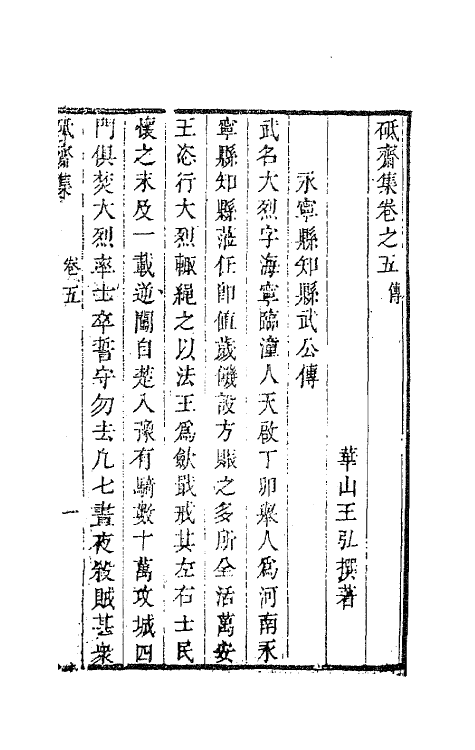 砥齋集卷之五 傳
華山王弘撰著
永寧縣知縣武公傳
武名大烈字海寧臨潼人天啟丁卯舉人爲河南永
寧縣知縣蒞任即值歲饑設方賑之多所全活萬安
王恣行大烈輒繩之以法王爲歛戢戒其左右士民
懷之未及一載逆闖自楚入豫有騎數十萬攻城四
門俱焚大烈率士卒誓守勿去凡七晝夜殺賊甚衆
砥齋集 卷五 一